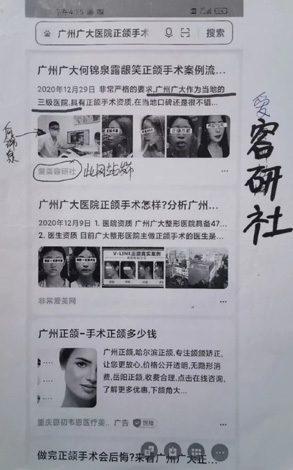 广州广大医院正颌手术
搜索
广州广大何锦泉露龈笑正颌手术案例流...
2020年12月29日 非常严格的要求,广州广大作为当地的
三级医院,具有正颌手术资质,在当地口碑还是很不错...
何锦泉
爱容研社
此网站称
爱容研社
广州广大医院正颌手术怎样?分析广州...
2020年12月9日 1. 医院资质 广州广大整形医院具备47...
2. 医生资质 目前广大整形医院主做正颌手术的医生是...
V-LINE
非常爱美网
广州正颌-手术正颌多少钱
广州正颌,哈尔滨正颌,专注龅颌矫正,
让您更放心,价格公开透明,无隐形消
费,岳阳正颌,收费合理,点击在线咨询,
了解更多优惠,下颌角大...
重庆蔚初韦恩医疗美... 广告
做完正颌手术会后悔?来看广州广大正...